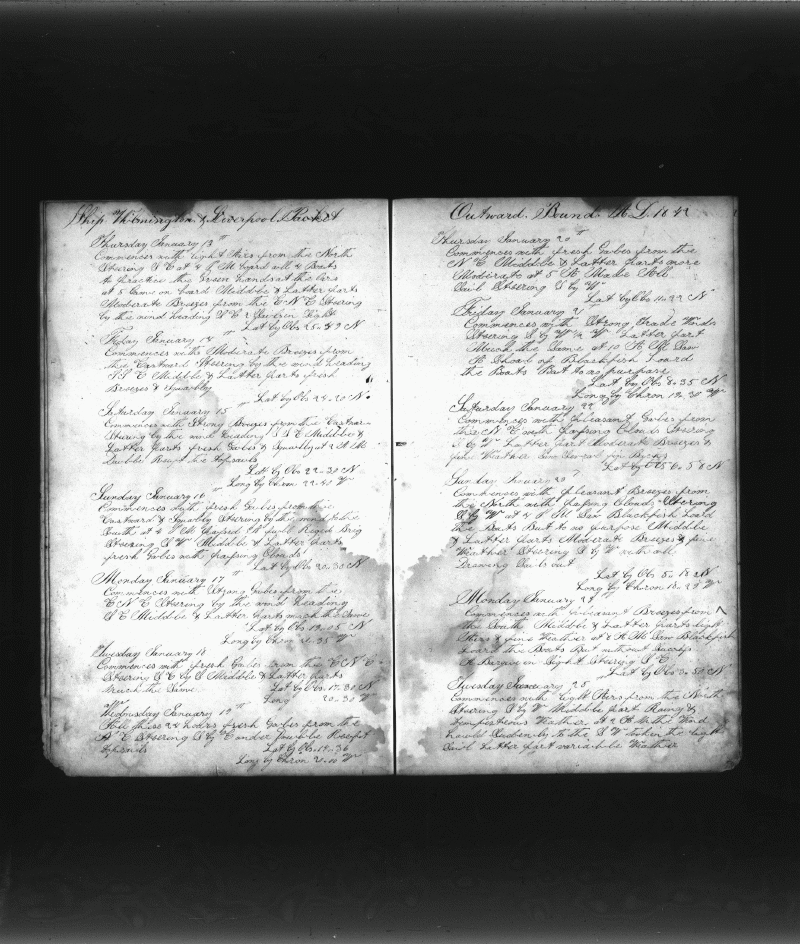 Ship Wilmington & Liverpool Packet
Thursday January 13th
Commences with light Airs from the North
Steering S E at 4 P M Lowered all 4 Boats
to practice the Green hands at the Oars
at 5 Came on board Middle & Latter parts
Moderate Breezes from the E N E Steering
by the wind heading S E
Lat by Obs 25-49 N
Friday January 14th
Commences with Moderate Breezes from
the Eastward Steering by the wind heading
S S E Middle & Latter parts fresh
Breezes & Squally
Lat by Obs 24-20 N
Saturday January 15th
Commences with Strong Breezes from the Eastward
Steering by the wind heading S S E Middle &
Latter parts fresh Gales & Squally at 2 A M
Double Reeft the Topsails
Lat by Obs 22-30 N
Long by Chron 22-40 W
Sunday January 16th
Commences with fresh Gales from the
Eastward & Squally Steering by the wind to the
South at 4 P M passed A full Riged Brig
Steering S W Middle & Latter parts
fresh Gales with passing Clouds
Lat by Obs 20-30 N
Monday January 17th
Commences with Strong Gales from the
E N E Steering by the wind heading
S E Middle & Latter parts much the Same
Lat by Obs 19-15 N
Long by Chron 21-35 W
Tuesday January 18
Commences with fresh Gales from the E N E
Steering S E by S Middle & Latter parts
Much the Same Lat by Obs 17-30 N
Long 20-30 W
Wednesday January 19th
this 24 hours fresh Gales from the
N E Steering S by E under Double Reeft
Topsails Lat by Obs 14-36
Long by Chron 21-10 W
Outward Bound A D 1842
Thursday January 20th
Commences with fresh Gales from the
N E Middle & Latter parts more
Moderate at 5 A Made All
Sail Steering S by W
Lat by Obs 11-22 N
Friday January 21
Commences with Strong Trade Winds
Steering S by W ½ W Latter part
Much the Same at 10 A M Saw
A Shoal of Blackfish Loard
the Boats But to no purpose
Lat by Obs 8-35 N
Long by Chron 19-30 W
Saturday January 22
Commences with Pleasant Gales from
the N E with passing Clouds Steering
S by W Latter part Moderate Breezes &
fine Weather Saw Several
Lat by Obs 6-58 N
Sunday January 23
Commences with Pleasant Breezes from
the North with passing Clouds Steering
S by W at 4 P M Saw Blackfish Loard
the Boats But to no purpose Middle
& Latter parts Moderate Breezes & fine
Weather Steering S by W with all
Drawing Sails out
Lat by Obs 5-18 N
Long by Chron 18-29 W
Monday January 24th
Commences with pleasant Breezes from
the South Middle & Latter parts light
Airs & fine Weather at 8 A M Saw Blackfish
Loard the Boats But without Success
A Barque in Sight Steering S E
Lat by Obs 3-50 N
Tuesday January 25
Commences with Light Airs from the North
Steering S by W Middle part Rainy &
Tempestious Weather At 2 A M the Wind
hauld Suddenly to the S W taken the light
Sail Latter part variable Weather